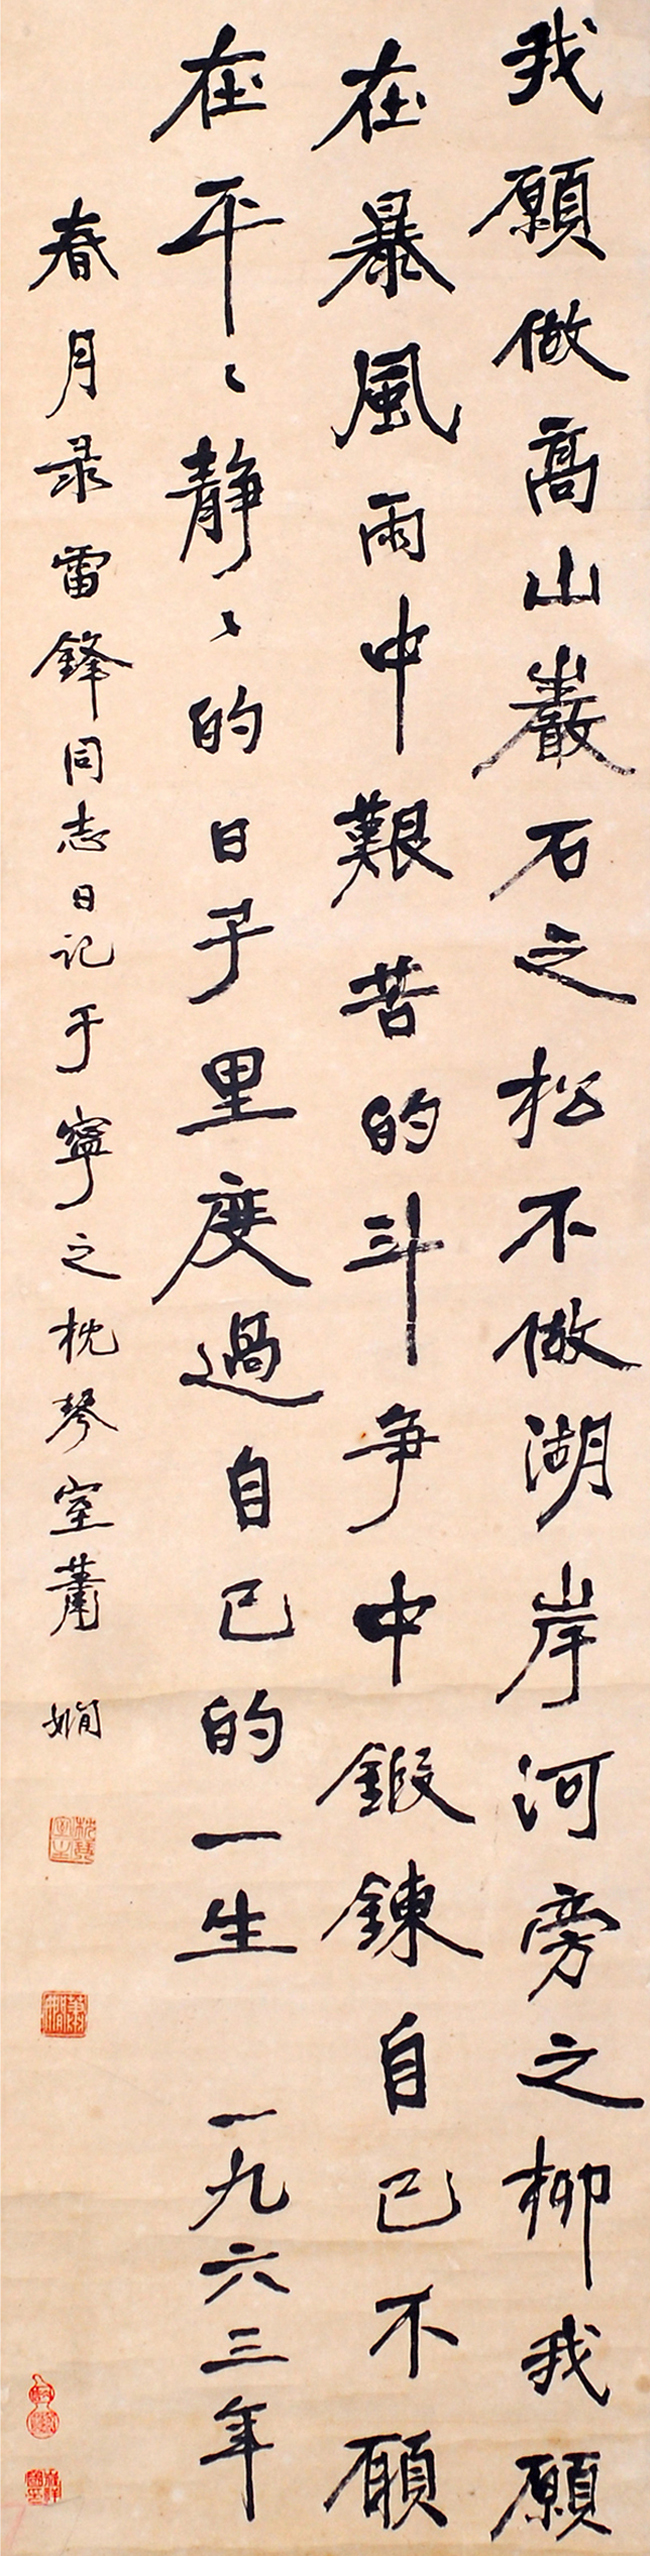 我願做高山巖石之松不做湖岸河旁之柳我願
在暴風雨中艱苦的斗争中鍛鍊自己不願
在平〻靜〻的日子里度過自己的一生 一九六三年
春月录雷鋒同志日记于寧之枕琴室蕭嫻
枕琴室主
蕭嫻